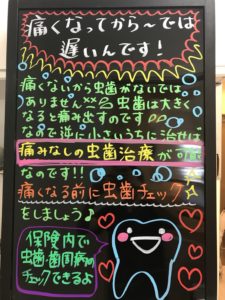 痛くなってから〜では
遅いんです！
痛くないから虫歯がないでは
ありません××虫歯は大きく
なると痛み出すのです
なので逆に小さいうちに治せば
痛みなしの虫歯治療が可能
なのです!!
痛くなる前に虫歯チェック
をしましょう♪
保険内で
虫歯・歯周病の
チェックできるよ